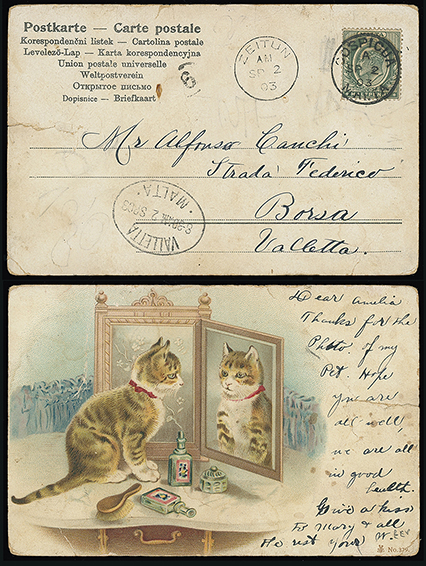 Postkarte — Carte postale
Korespondenční listek – Cartolina postale
Levelező-Lap – Karta korespondencyjna
Union postale universelle
Weltpostverein
Открытое письмо
Dopisnice – Briefkaart
ZEITUN
AM
SP 2
03
COSPICUA
MALTA
Mr Alfonso Canchi
Strada Federico
Borsa
Valletta.
VALLETTA
MALTA
Dear Amelia
Thanks for the
Photo of my
Pet. Hope
you are
all well,
we are all
in good
health.
Give a kiss
to Mary & all
the rest your
No. 379.